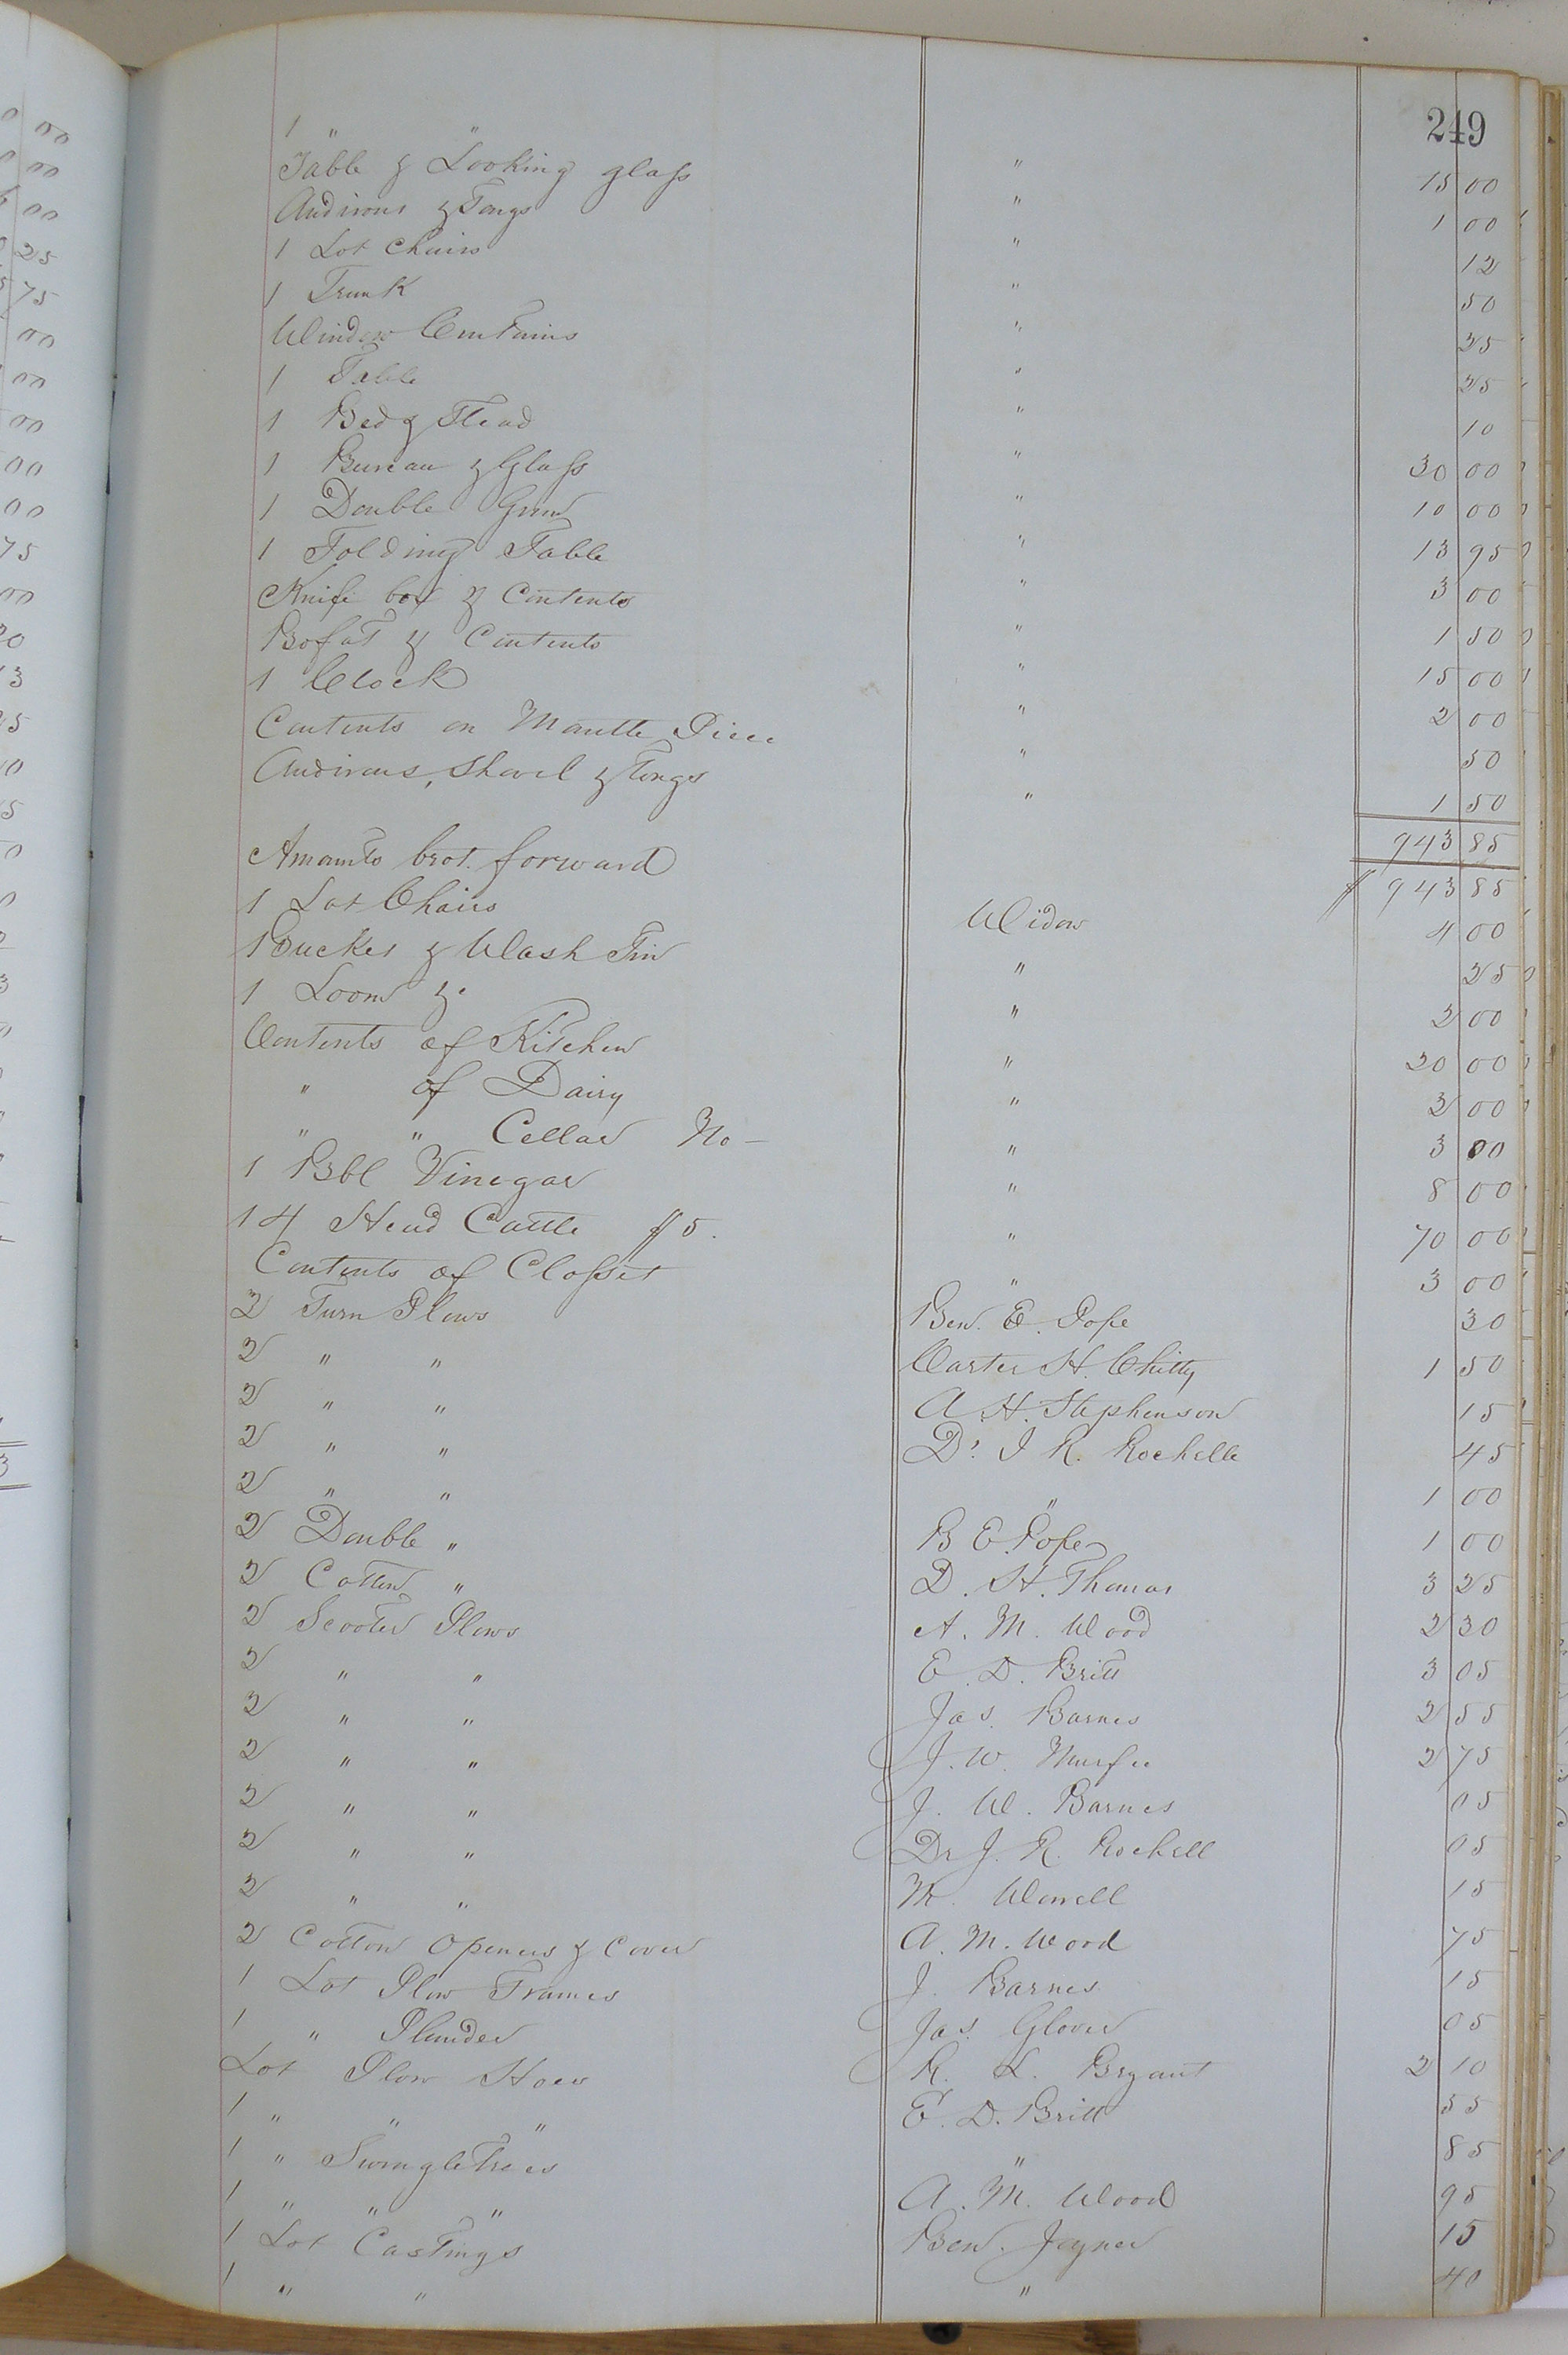 249
1 " " " 15 00
Table & Looking glass " 1 00
Andirons & Tongs " 12
1 Lot Chairs " 50
1 Trunk " 25
Window Curtains " 25
1 Table " 10
1 Bed & Stead " 30 00
1 Bureau & Glass " 10 00
1 Double Gun " 13 95
1 Folding Table " 3 00
Knife box & Contents " 1 50
Bofat & Contents " 15 00
1 Clock " 2 00
Contents on Mantle Piece " 50
Andirons, Shovel & Tongs " 1 50
943 85
Amounts brot. forward $ 943 85
1 Lot Chairs Widow 4 00
1 Bucket & Wash Tin " 25
1 Loom &c " 2 00
Contents of Kitchen " 20 00
" of Dairy " 2 00
" " Cellar No - " 3 00
1 Bbl Vinegar " 8 00
14 Head Cattle $5. " 70 00
Contents of Closset " 3 00
2 Turn Plows Ben. E. Pope 30
2 " " Carter H. Chitty 1 50
2 " " A. H. Stephenson 15
2 " " Dr. J R. Rochelle 45
2 " " " 1 00
2 Double " B E. Pope 1 00
2 Cotton " D. H. Thomas 3 25
2 Scooter Plows A. M. Wood 2 30
2 " " E. D. Britt 3 05
2 " " Jas. Barnes 2 55
2 " " J. W. Murfee 2 75
2 " " J. W. Barnes 05
2 " " Dr J. R. Rochell 05
2 " " M. Worrell 15
2 Cotton Openers & Cover A. M. Wood 75
1 Lot Plow Frames J. Barnes 15
1 " Plunder Jas. Glover 05
Lot Plow Hoes R. L. Bryant 2 10
1 " " " E. D. Britt 55
1 " Swingletrees " 85
1 " " " A. M. Wood 95
1 Lot Castings Ben. Joyner 15
1 " " " 40